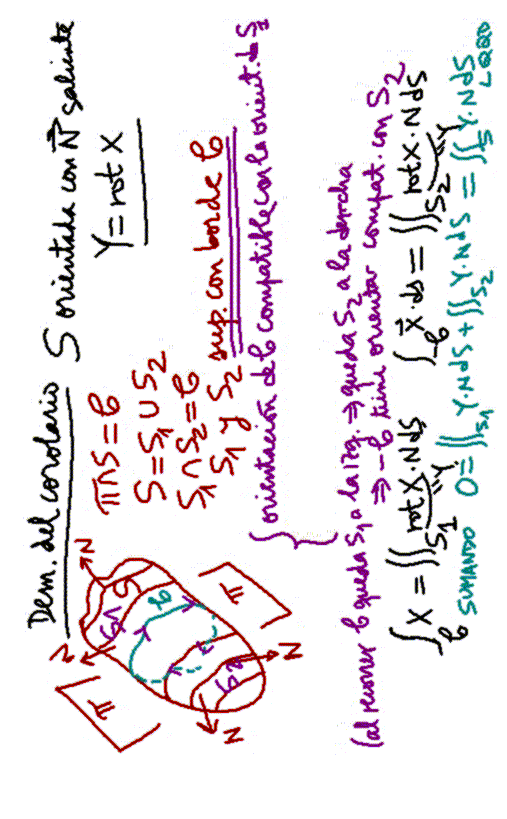 Dem. del corolario
S orientada con N⃗ saliente
Y = rot X
π∩S = C
S = S₁ ∪ S₂
S₁ ∩ S₂ = C
S₁ y S₂ sup. con borde C
orientación de C compatible con la orient. de S₁
(al recorrer C queda S₁ a la izq. ⇒ queda S₂ a la derecha
⇒ -C tiene orientar compat. con S₂
∫_C X = ∬_S₁ rot X · N dS
∫_-C X⃗ · ds = ∬_S₂ rot X · N dS
Y
Y
SUMANDO 0 = ∬_S₁ Y · N dS + ∬_S₂ Y · N dS = ∬_S Y · N dS
LQQD
π
π
N
N
N
N
S
S₁
S₂
C